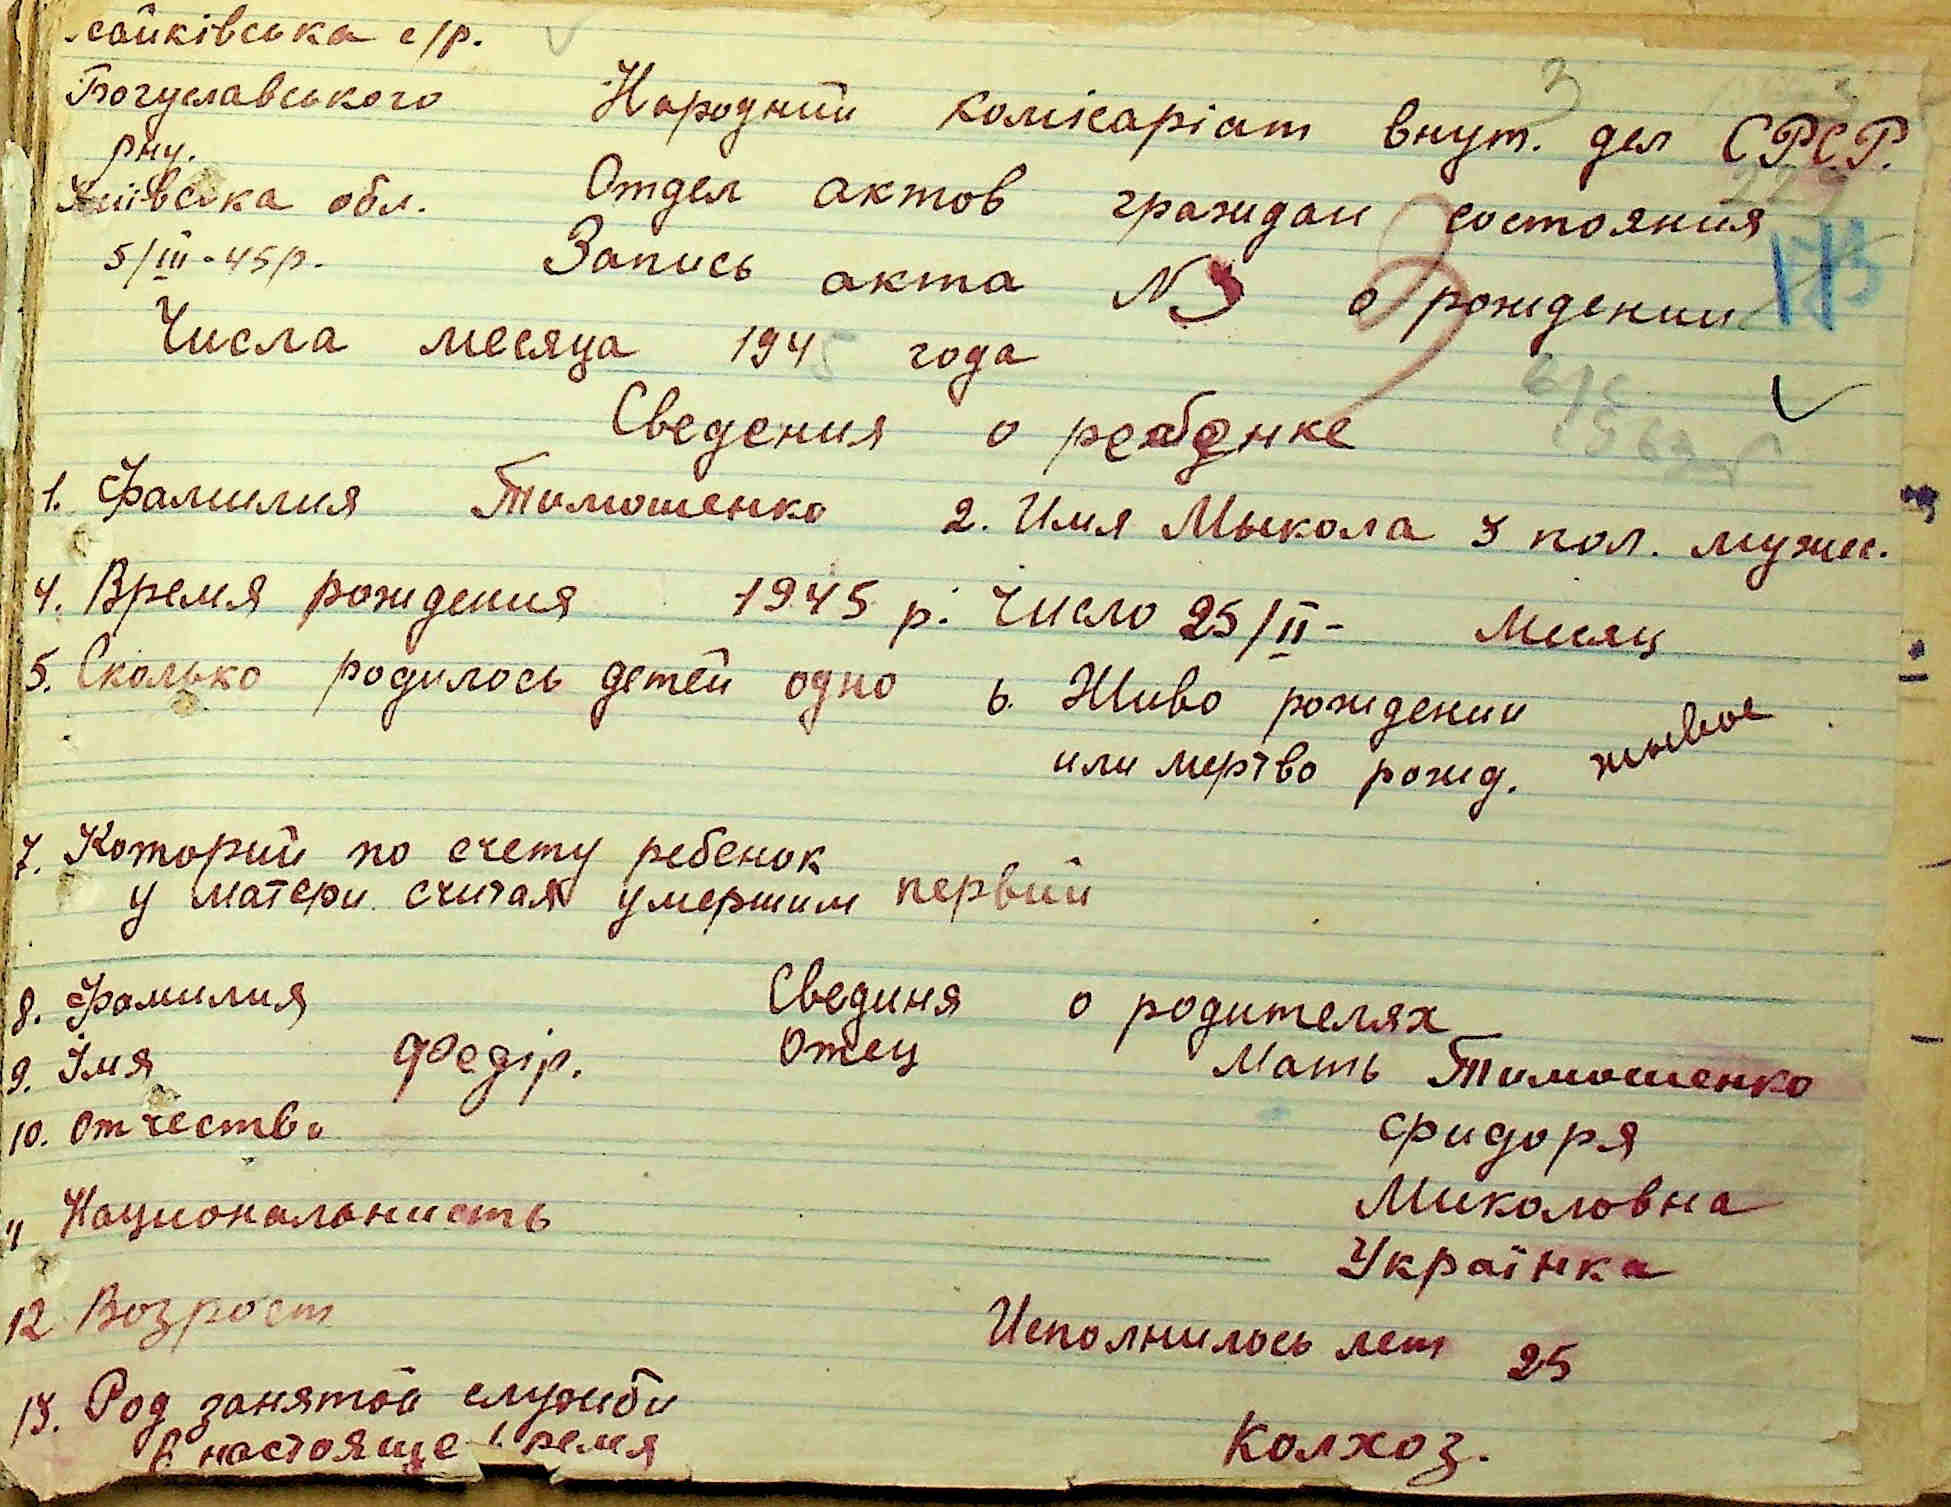 сайківська с/р.
Богуславського
рну.
Київська обл.
5/III-45р.
Народний комісаріат внут. дел СРСР.
Отдел актов граждан состояния
Запись акта N3 о рождении
Числа месяца 1945 года
Сведения о ребенке
1. Фамилия Тимошенко 2. Имя Мыкола 3 пол. мужес.
4. Время рождения 1945 р. число 25/II- Мисяц
5. Сколько родилось детей одно 6. Живо рождении
или мертво рожд. жывое
7. Которий по счету ребенок
у матери считая умершим первий
8. Фамилия Свединя о родителях
9. Імя Федір. Отец Мать Тимошенко
10. Отчество Фидоря
Миколовна
11 Национальность Українка
12 Возрост Исполнилось лет 25
13. Род занятой служби
в настояще время Колхоз.